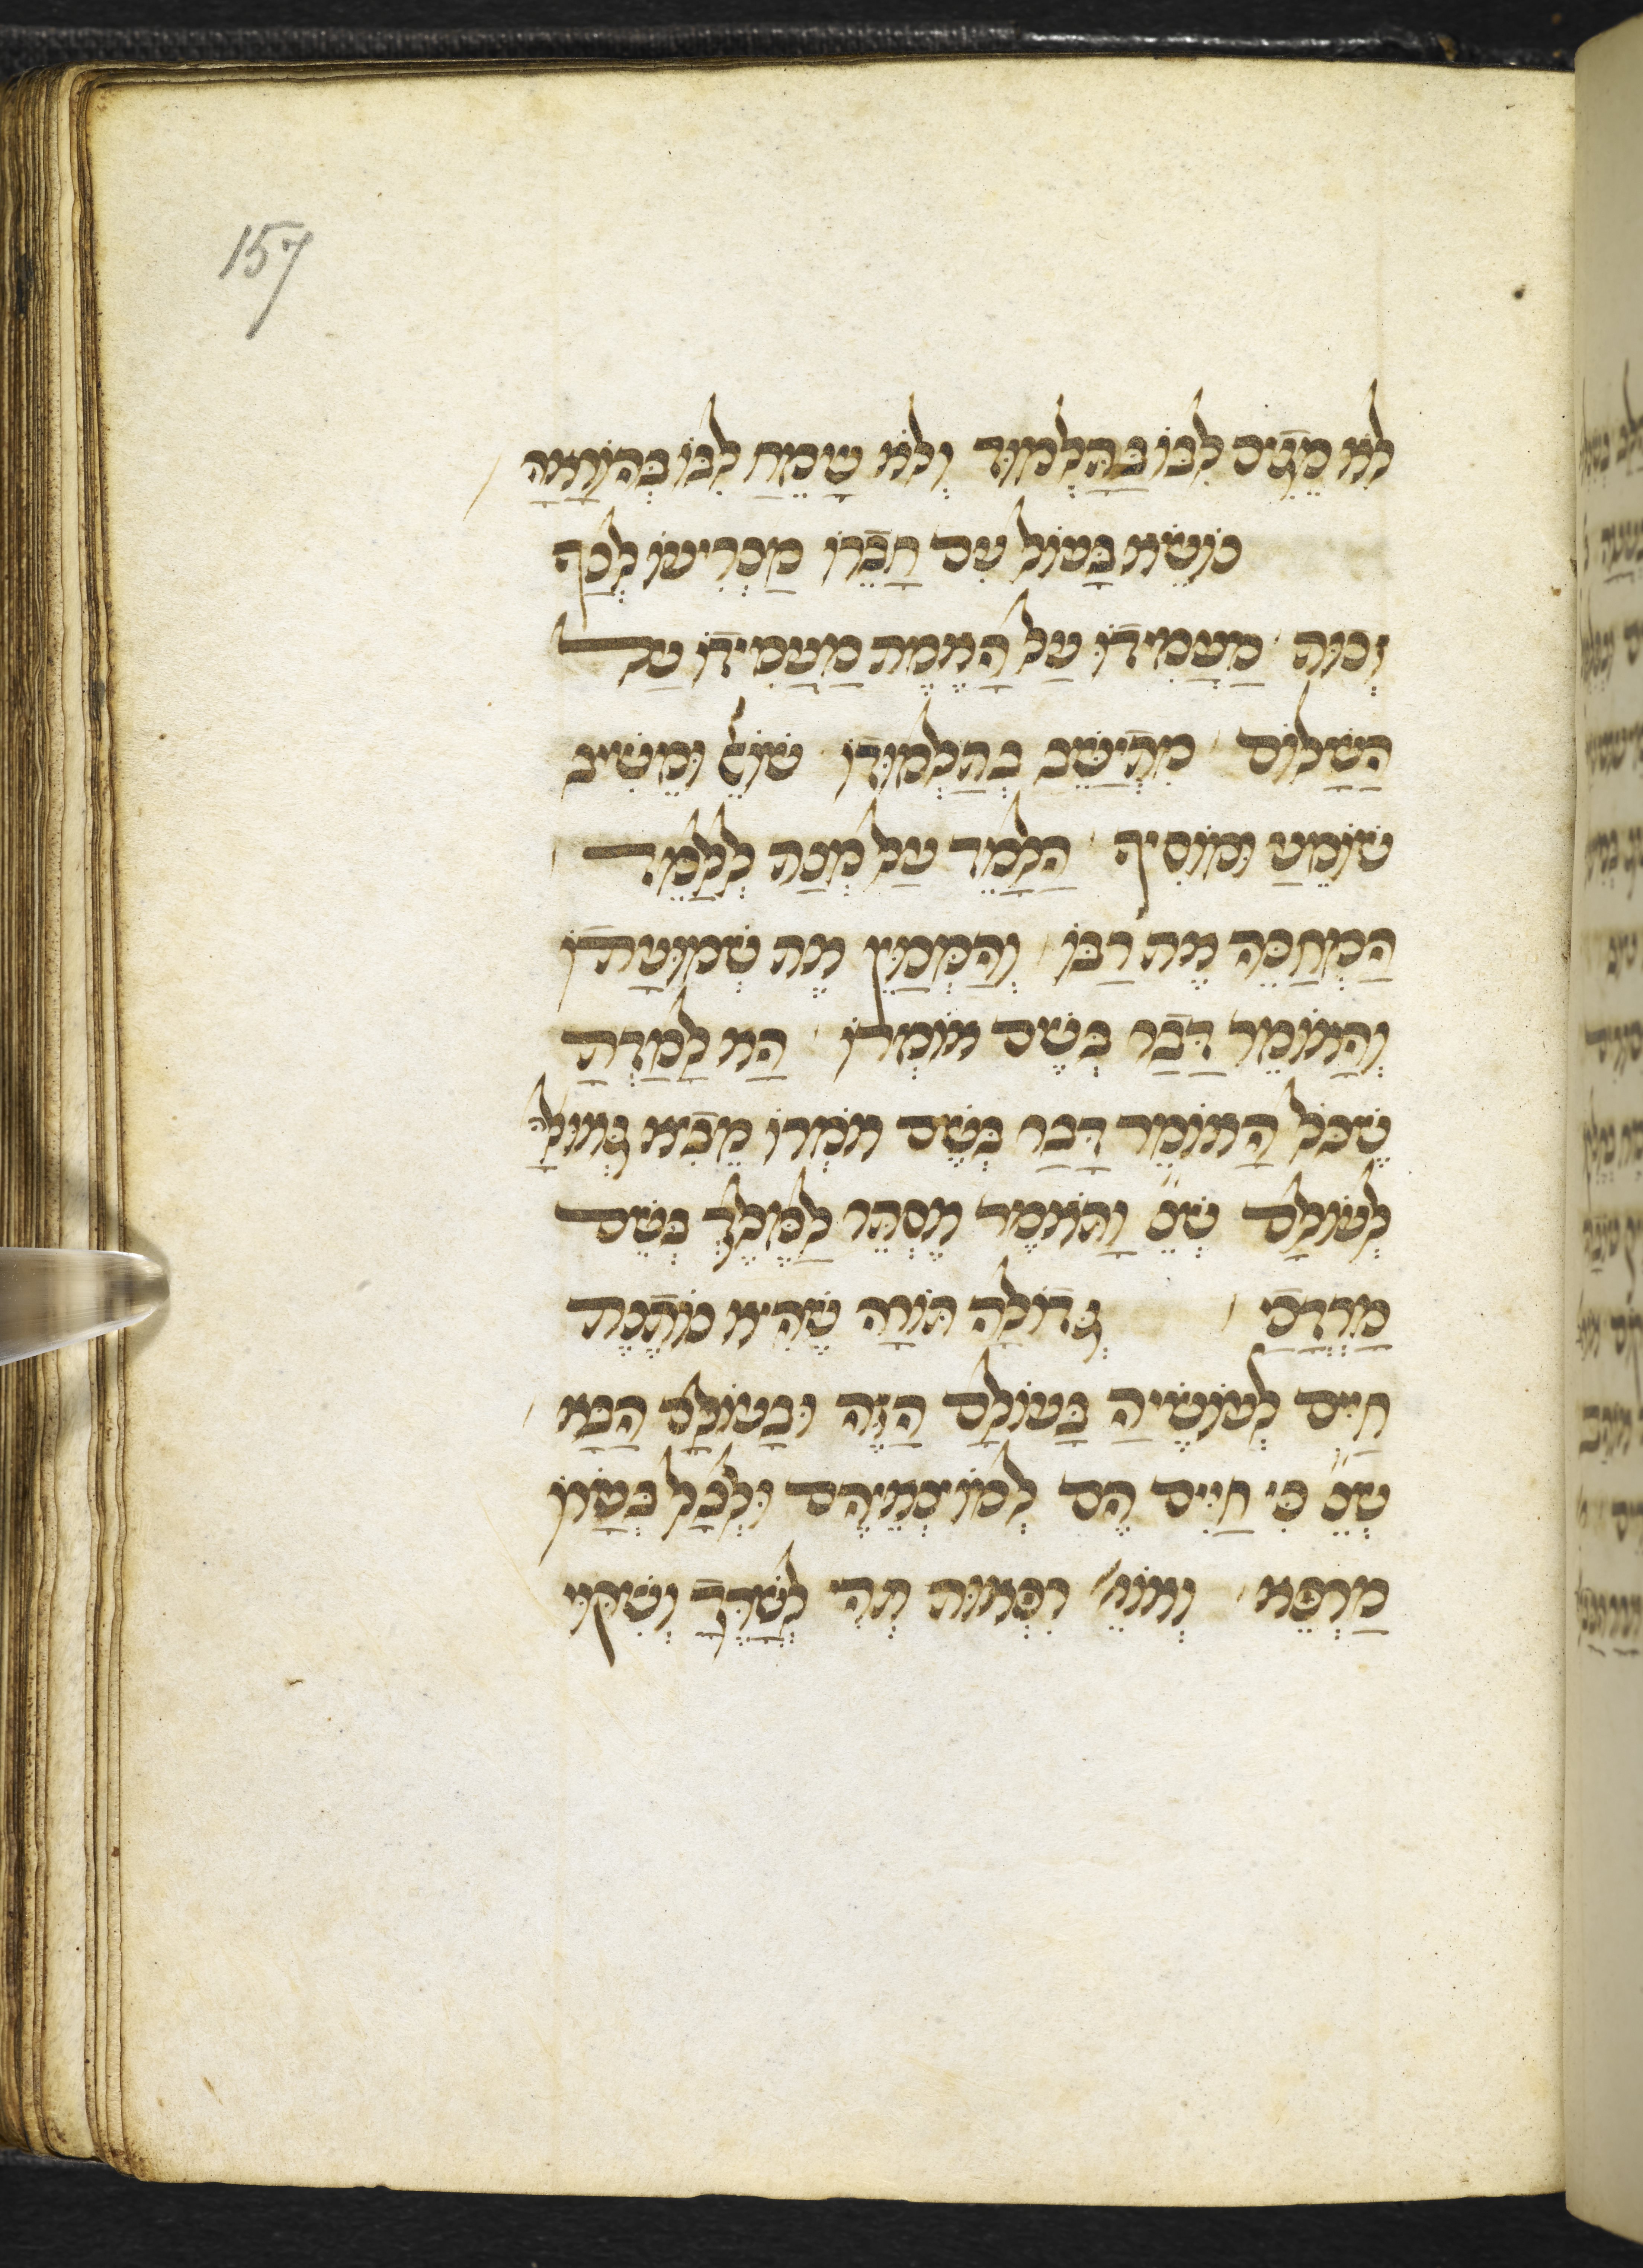 157
לֹא מֵגִיס לִבּוֹ בְּתַלְמוּד וְלֹא שָׂמֵחַ לִבּוֹ בְּהוֹרָאָה
נוֹשֵׂא בָּעוֹל עִם חֲבֵרוֹ מַכְרִיעוֹ לְכַף
זְכוּת מַעֲמִידוֹ עַל הָאֱמֶת מַעֲמִידוֹ עַל
הַשָּׁלוֹם מִתְיַשֵּׁב בְּתַלְמוּדוֹ שׁוֹאֵל וּמֵשִׁיב
שׁוֹמֵעַ וּמוֹסִיף הַלָּמֵד עַל מְנַת לְלַמֵּד
הַמַּחְכִּים אֶת רַבּוֹ וְהַמְכַוֵּין אֶת שְׁמוּעָתוֹ
וְהָאוֹמֵר דָּבָר בְּשֵׁם אוֹמְרוֹ הָא לָמַדְתָּ
שֶׁכָּל הָאוֹמֵר דָּבָר בְּשֵׁם אֹמְרוֹ מֵבִיא גְּאוּלָּה
לְעוֹלָם שֶׁנֶּ׳ וַתֹּאמֶר אֶסְתֵּר לַמֶּלֶךְ בְּשֵׁם
מָרְדֳּכָי גְּדוֹלָה תּוֹרָה שֶׁהִיא נוֹתֶנֶת
חַיִּים לְעוֹשֶׂיהָ בָּעוֹלָם הַזֶּה וּבָעוֹלָם הַבָּא
שֶׁנֶּ׳ כִּי חַיִּים הֵם לְמוֹצְאֵיהֶם וּלְכָל בְּשָׂרוֹ
מַרְפֵּא וְאוֹמֵ׳ רִפְאוּת תְּהִי לְשָׁרֶּךָ וְשִׁקּוּי